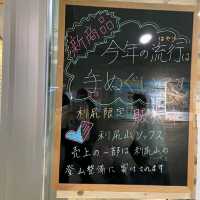 新商品
今年の流行は
はやり
手ぬぐい
利尻限定 販売
利尻山ソックス
売上の一部は利尻山の
登山整備に寄付されます